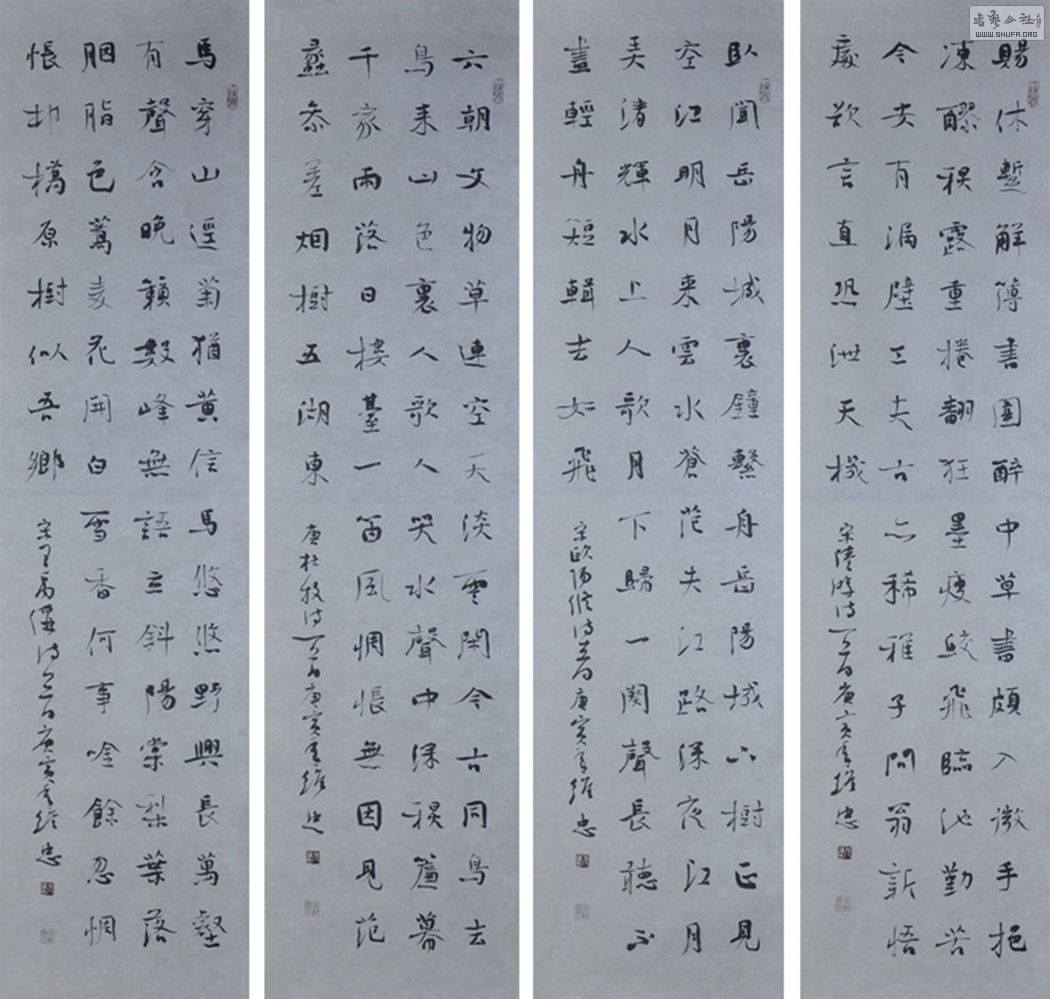 賜休暫解簿書圍醉中草書頗入微手挹
凍醪秋露重捲翻狂墨瘦蛟飛臨池勤苦
今安有漏壁工夫古亦稀稚子問翁新悟
處欲言直恐泄天機
宋陸游詩一首庚寅夏維忠
臥聞岳陽城裏鐘繫舟岳陽城下樹正見
空江明月來雲水蒼茫失江路深夜江月
弄清輝水上人歌月下歸一闋聲長聽不
盡輕舟短楫去如飛
宋歐陽修詩一首庚寅夏維忠
六朝文物草連空天淡雲閑今古同鳥去
鳥來山色裏人歌人哭水聲中深秋簾幕
千家雨落日樓臺一笛風惆悵無因見范
蠡參差烟樹五湖東
唐杜牧詩一首庚寅夏維忠
馬穿山徑菊猶黃信馬悠悠野興長萬壑
有聲含晚籟數峰無語立斜陽棠梨葉落
胭脂色蕎麥花開白雪香何事吟餘忽惆
悵村橋原樹似吾鄉
宋王禹偁詩一首庚寅夏維忠
WWW.SHUFA.ORG